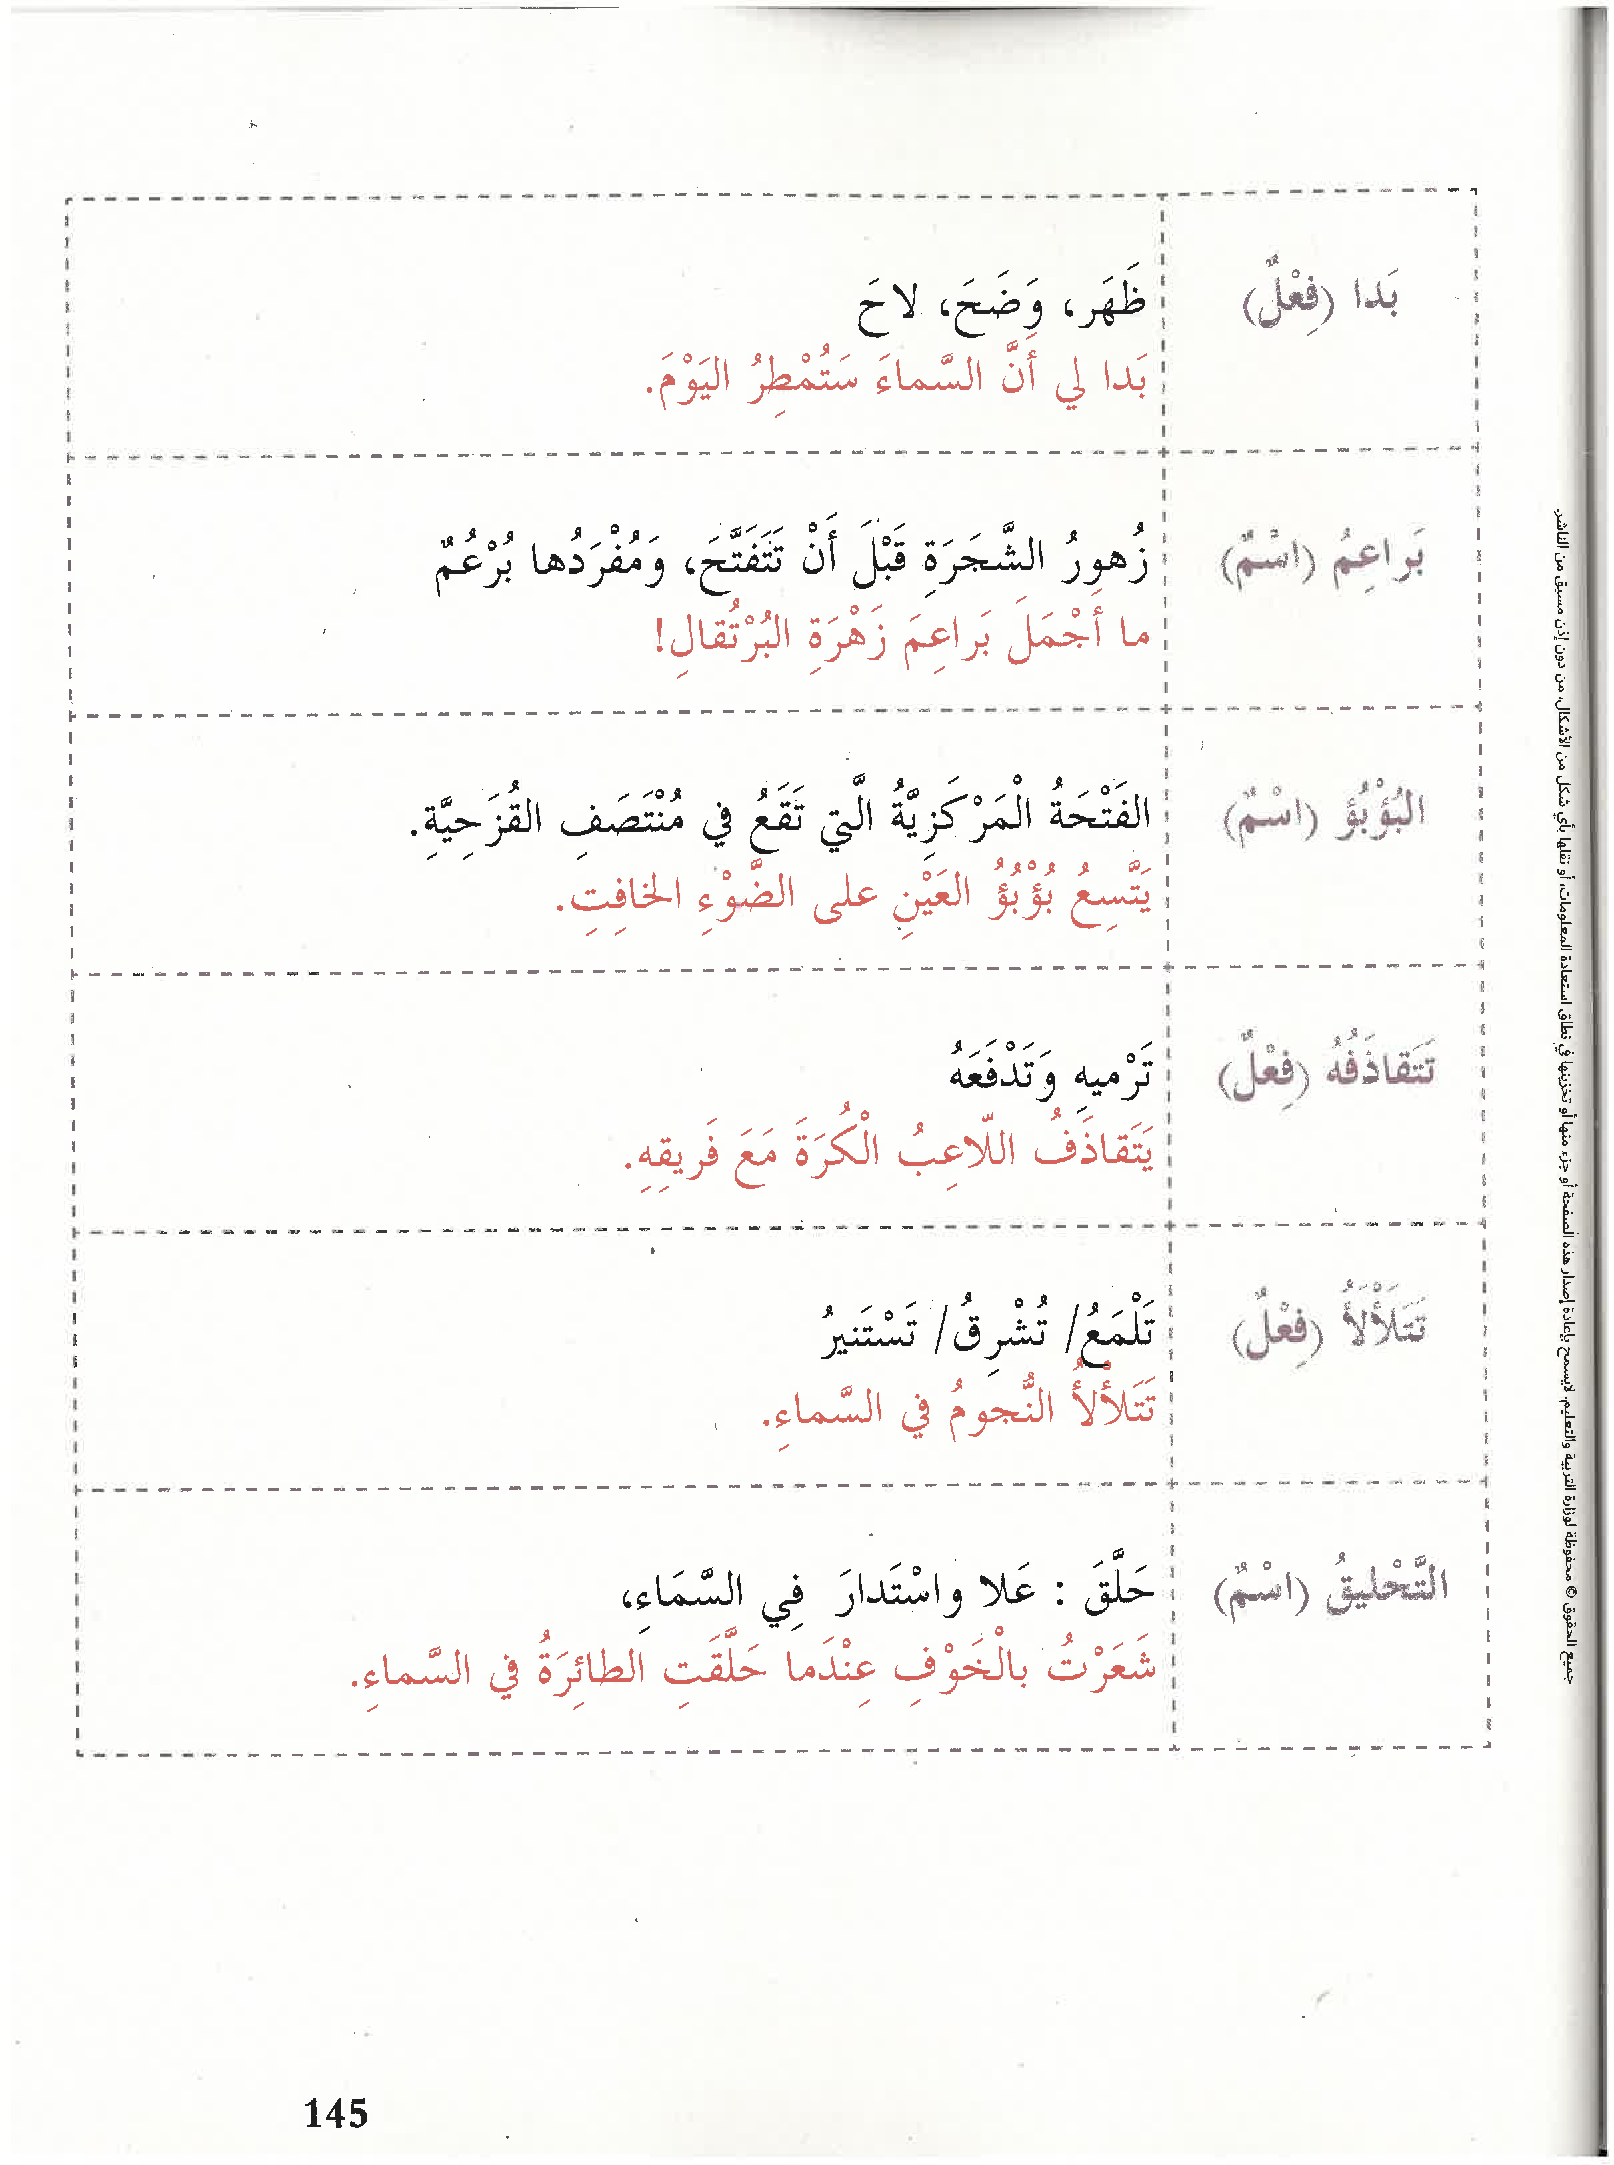 بَدا (فِعْلٌ)
ظَهَر، وَضَحَ، لاحَ
بَدا لي أَنَّ السَّماءَ سَتُمْطِرُ اليَوْمَ.
بَراعِمُ (اسْمٌ)
زُهورُ الشَّجَرَةِ قَبْلَ أَنْ تَتَفَتَّحَ، وَمُفْرَدُها بُرْعُمٌ
ما أَجْمَلَ بَراعِمَ زَهْرَةِ البُرْتُقالِ!
البُؤْبُؤ (اسْمٌ)
الفَتْحَةُ الْمَرْكَزِيَّةُ الَّتي تَقَعُ في مُنْتَصَفِ القُزَحِيَّةِ.
يَتَّسِعُ بُؤْبُؤُ العَيْنِ على الضَّوْءِ الخافِتِ.
تَتَقاذَفُهُ (فِعْلٌ)
تَرْميهِ وَتَدْفَعَهُ
يَتَقاذَفُ اللّاعِبُ الْكُرَةَ مَعَ فَريقِهِ.
تَتَلَأْلَأُ (فِعْلٌ)
تَلْمَعُ/ تُشْرِقُ/ تَسْتَنيرُ
تَتَلَأْلَأُ النُّجومُ في السَّماءِ.
التَّحْليقُ (اسْمٌ)
حَلَّقَ : عَلا واسْتَدارَ فِي السَّمَاءِ،
شَعَرْتُ بالْخَوْفِ عِنْدَما حَلَّقَتِ الطائِرَةُ في السَّماءِ.
جميع الحقوق © محفوظة لوزارة التربية والتعليم. لايسمح بإعادة إصدار هذه الصفحة أو جزء منها أو تخزينها في نطاق استعادة المعلومات، أو نقلها بأي شكل من الأشكال، من دون إذن مسبق من الناشر.
145